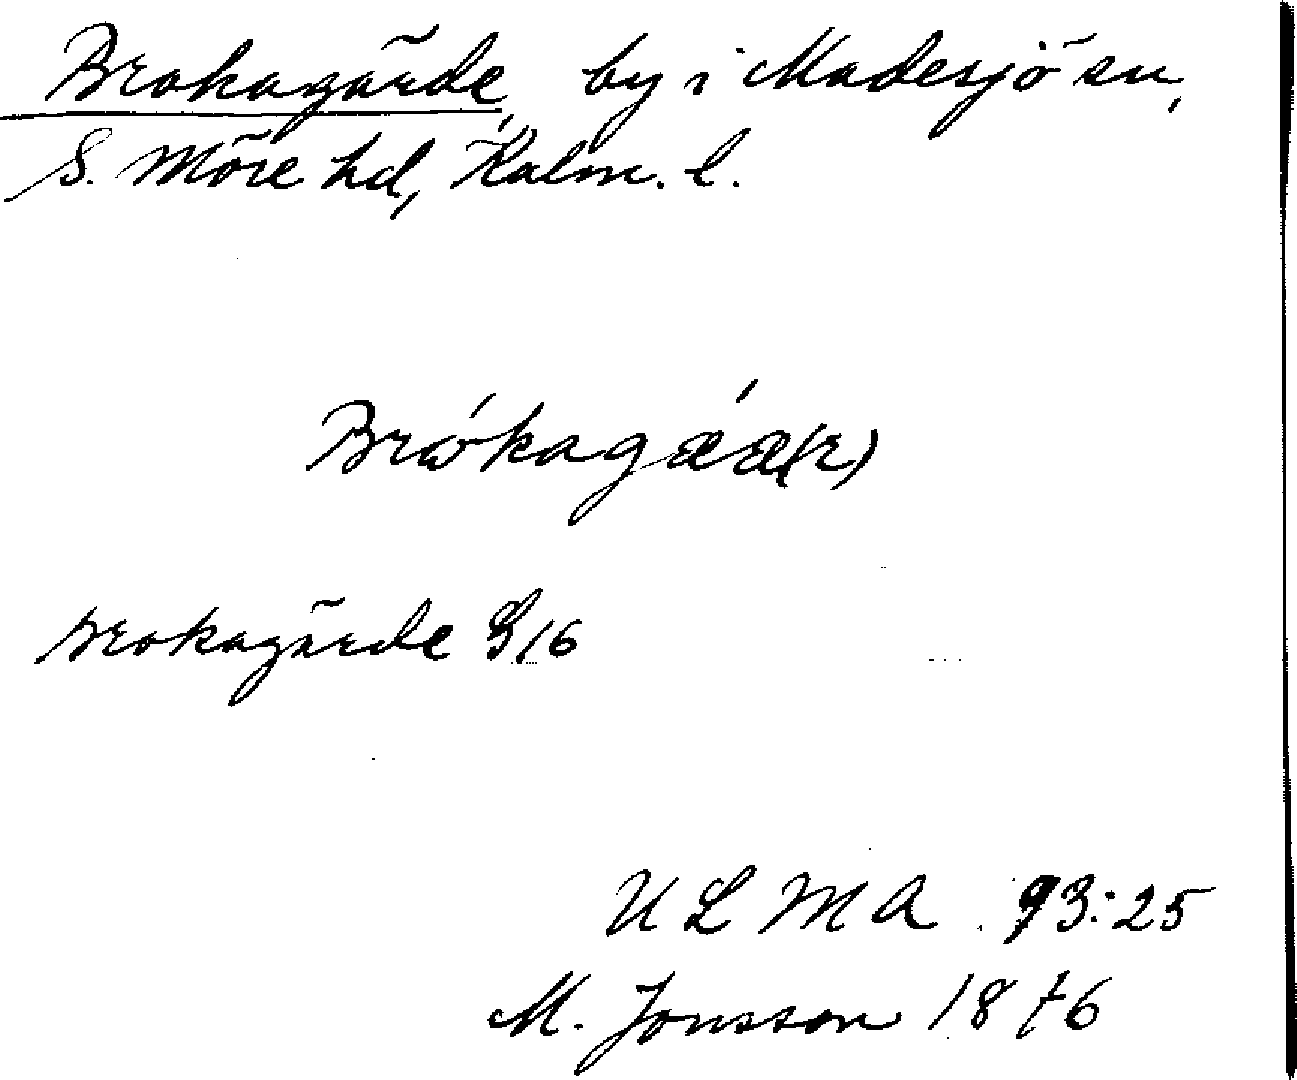 Brokagärde, by i Madesjö sn,
S. Möre hd, Kalm. l.
Brώkagǽæ(r)
Brokagärde 816
ULMA 93:25
M. Jonsson 1876